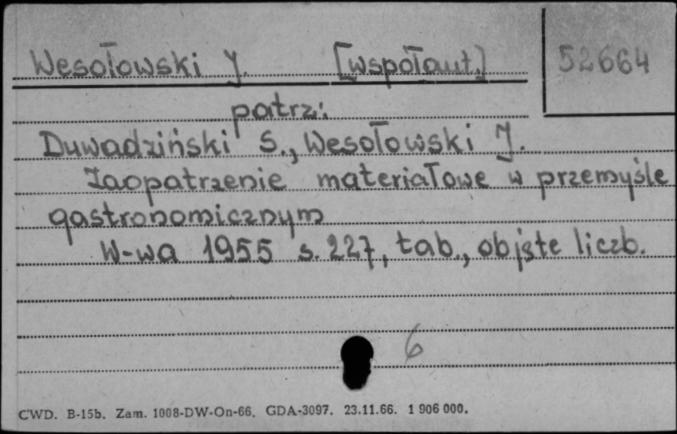 Wesołowski J. [współaut.] 52664
patrz:
Duwadziński S., Wesołowski J.
Zaopatrzenie materiałowe w przemyśle
gastronomicznym
W-wa 1955 s. 227, tab., objęte liczb.
6
CWD. B-15b. Zam. 1008-DW-On-66. GDA-3097. 23.11.66. 1 906 000.